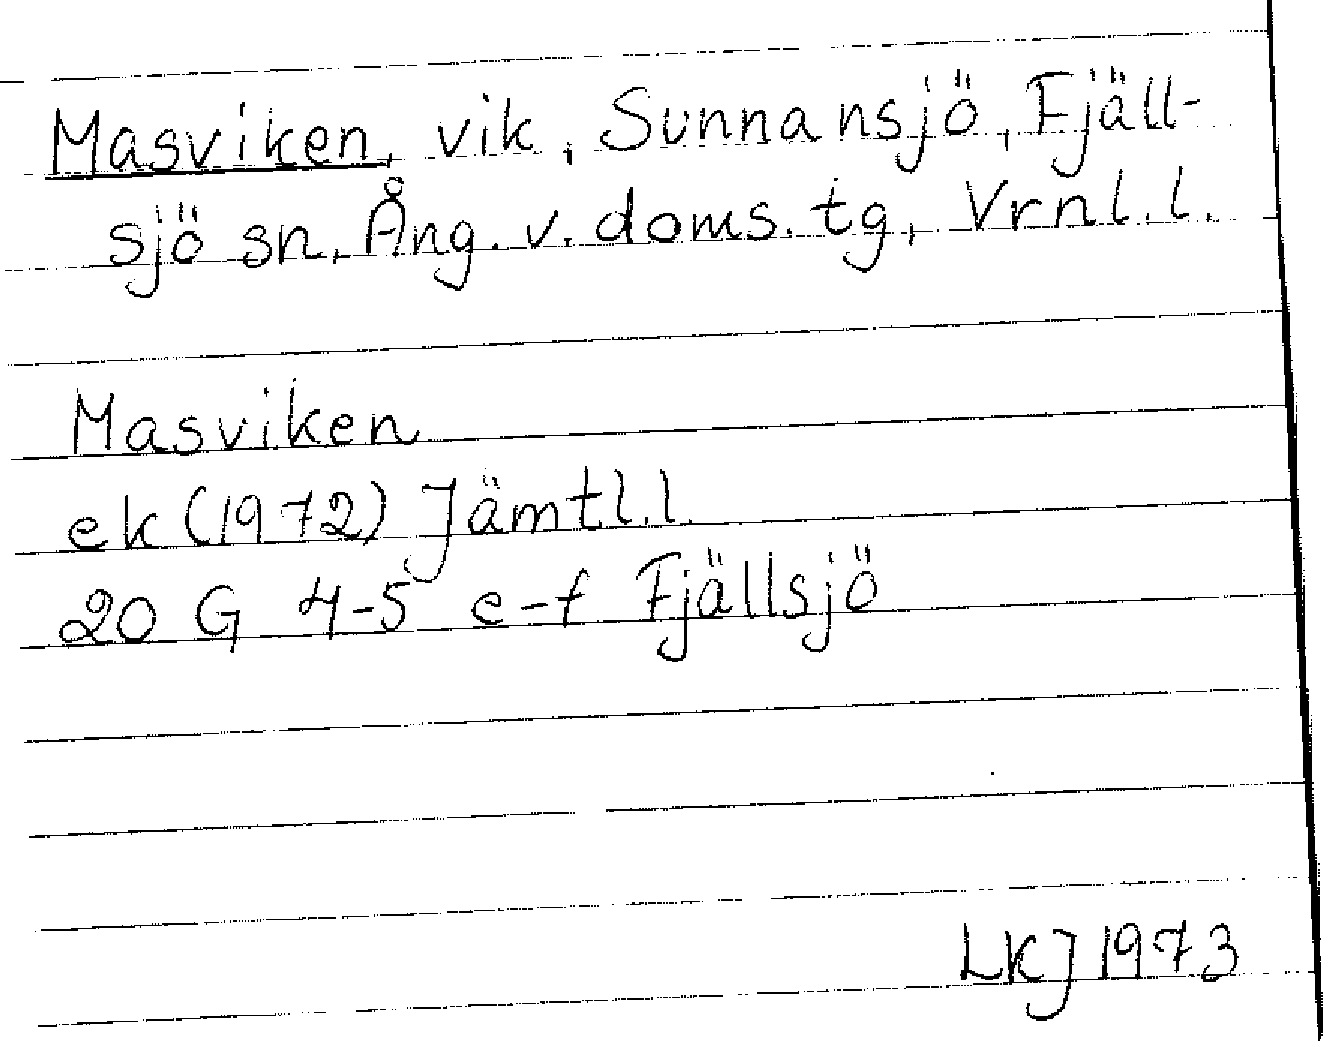 Masviken, vik, Sunnansjö, Fjäll-
sjö sn, Ång. v. doms. tg, Vrnl. l.
Masviken
ek (1972) Jämtl. l.
20 G 4-5 e-f Fjällsjö
LKJ 1973